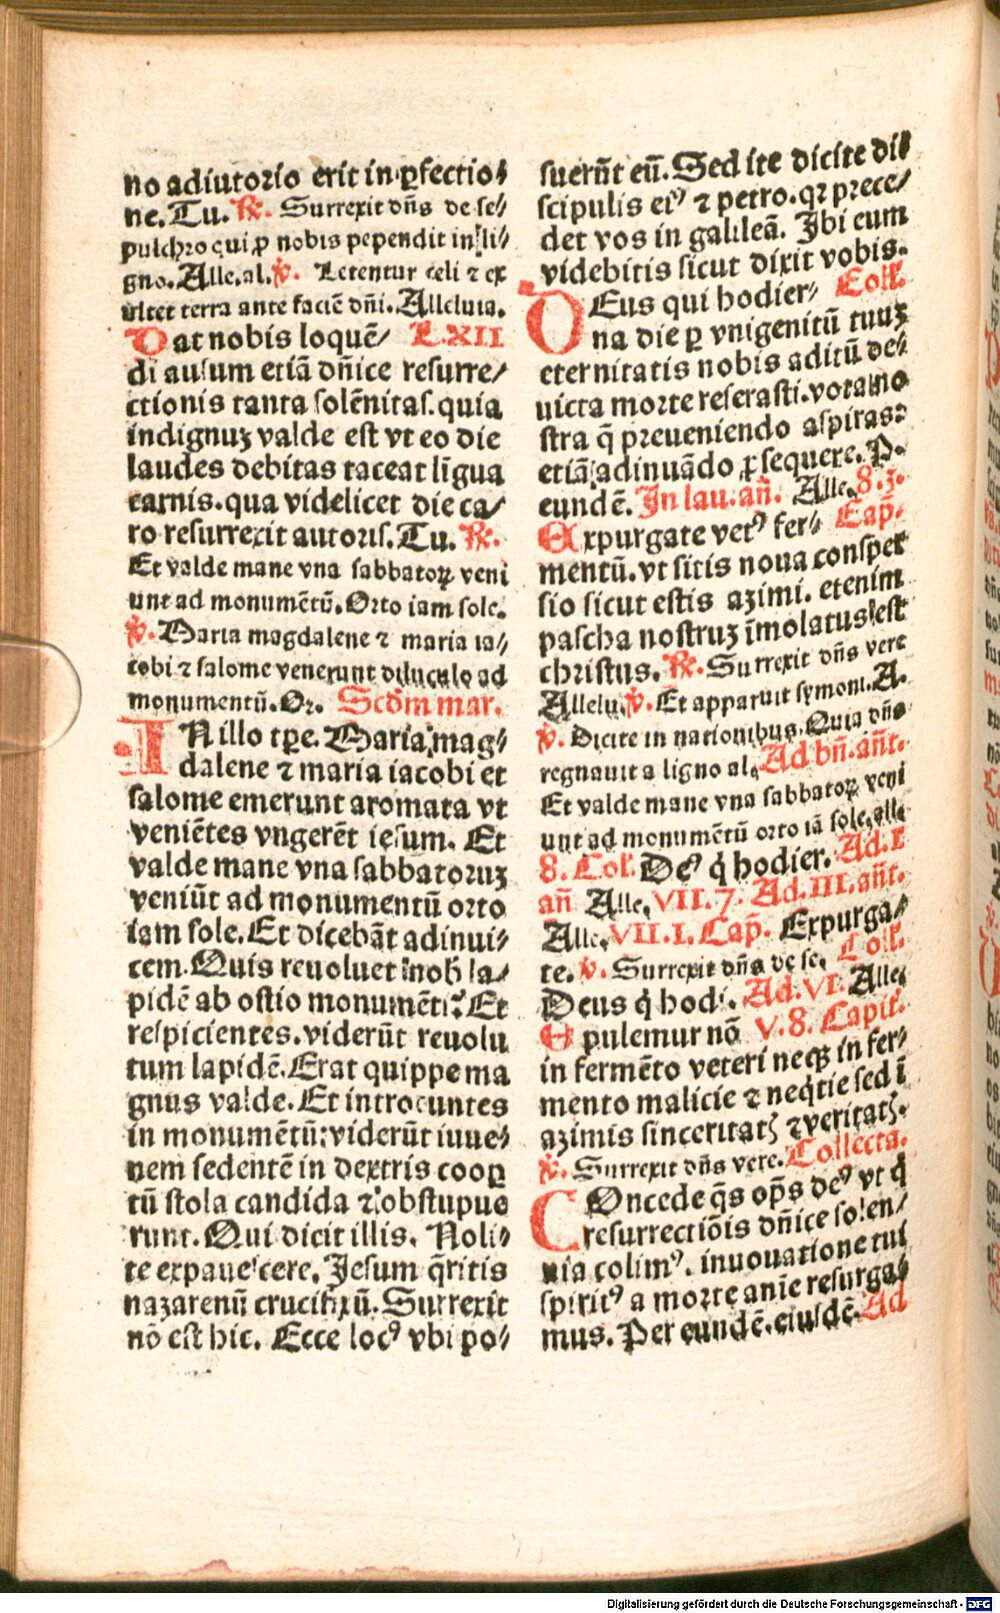 no adiutorio erit in ꝑfectio⸗
ne. Tu. ℟. Surrexit dn̄s de se⸗
pulchro qui ꝓ nobis pependit in li⸗
gno. Alle. al. ℣. Letentur celi ⁊ ex
ultet terra ante faciē dn̄i. Alleluia.
Dat nobis loquē⸗ L.XII
di ausum etiā dn̄ice resurre⸗
ctionis tanta solēnitas. quia
indignuꝫ valde est vt eo die
laudes debitas taceat līgua
carnis. qua videlicet die ca⸗
ro resurrexit autoris. Tu. ℟.
Et valde mane vna sabbatoꝝ veni
unt ad monumētū. Orto iam sole.
℣. Maria magdalene ⁊ maria ia⸗
cobi ⁊ salome venerunt diluculo ad
monumentū. Or. Scd̄m mar.
IN illo tꝑe. Maria mag⸗
dalene ⁊ maria iacobi et
salome emerunt aromata vt
veniētes vngerēt iesum. Et
valde mane vna sabbatoruꝫ
veniūt ad monumentū orto
iam sole. Et dicebāt adinui⸗
cem. Quis reuoluet nob̄ la⸗
pidē ab ostio monumēti? Et
respicientes. viderūt reuolu
tum lapidē. Erat quippe ma
gnus valde. Et introeuntes
in monumētū: viderūt iuue⸗
nem sedentē in dextris cooꝑ
tū stola candida ⁊ obstupue
runt. Qui dicit illis. Noli⸗
te expauescere. Jesum q̄ritis
nazarenū crucifixū. Surrexit
nō est hic. Ecce locꝰ vbi po⸗
suerūt eū. Sed ite dicite di⸗
scipulis eiꝰ ⁊ petro. qꝛ prece⸗
det vos in galileā. Ibi eum
videbitis sicut dixit vobis.
DEus qui hodier⸗ Coll.
na die ꝑ vnigenitū tuuꝫ
eternitatis nobis aditū de⸗
uicta morte reserasti. vota no
stra q̄ preueniendo aspiras:
etiā adiuuādo ꝓsequere. P.
eundē. In lau. an̄. Alle. 8. 3.
Expurgate vetꝰ fer⸗ Cap̄.
mentū. vt sitis noua consper
sio sicut estis azimi. etenim
pascha nostruꝫ īmolatus est
christus. ℟. Surrexit dn̄s vere
Allelu. ℣. Et apparuit symoni. A.
℣. Dicite in nationibus. Quia dn̄s
regnauit a ligno al. Ad bn̄. an̄t.
Et valde mane vna sabbatoꝝ veni
unt ad monumētū orto iā sole. alle
8. Col. Deꝰ q̇ hodier. Ad. I
an̄ Alle. VII. 7. Ad. III. an̄t.
Alle. VII. I. Cap̄. Expurga⸗
te. ℣. Surrexit dn̄s de se. Coll.
Deus q̇ hodi. Ad. VI. Alle.
Epulemur nō V. 8. Capit.
in fermēto veteri neqꝫ in fer⸗
mento malicie ⁊ neq̇tie sed ī
azimis sinceritatꝭ ⁊ veritatꝭ.
℣. Surrexit dn̄s vere. Collecta.
COncede q̄s op̄s deꝰ vt q̇
resurrectiōis dn̄ice solen⸗
nia colimꝰ. innouatione tui
spiritꝰ a morte anīe resurga⸗
mus. Per eundē. eiusdē. Ad
Digitalisierung gefördert durch die Deutsche Forschungsgemeinschaft - DFG